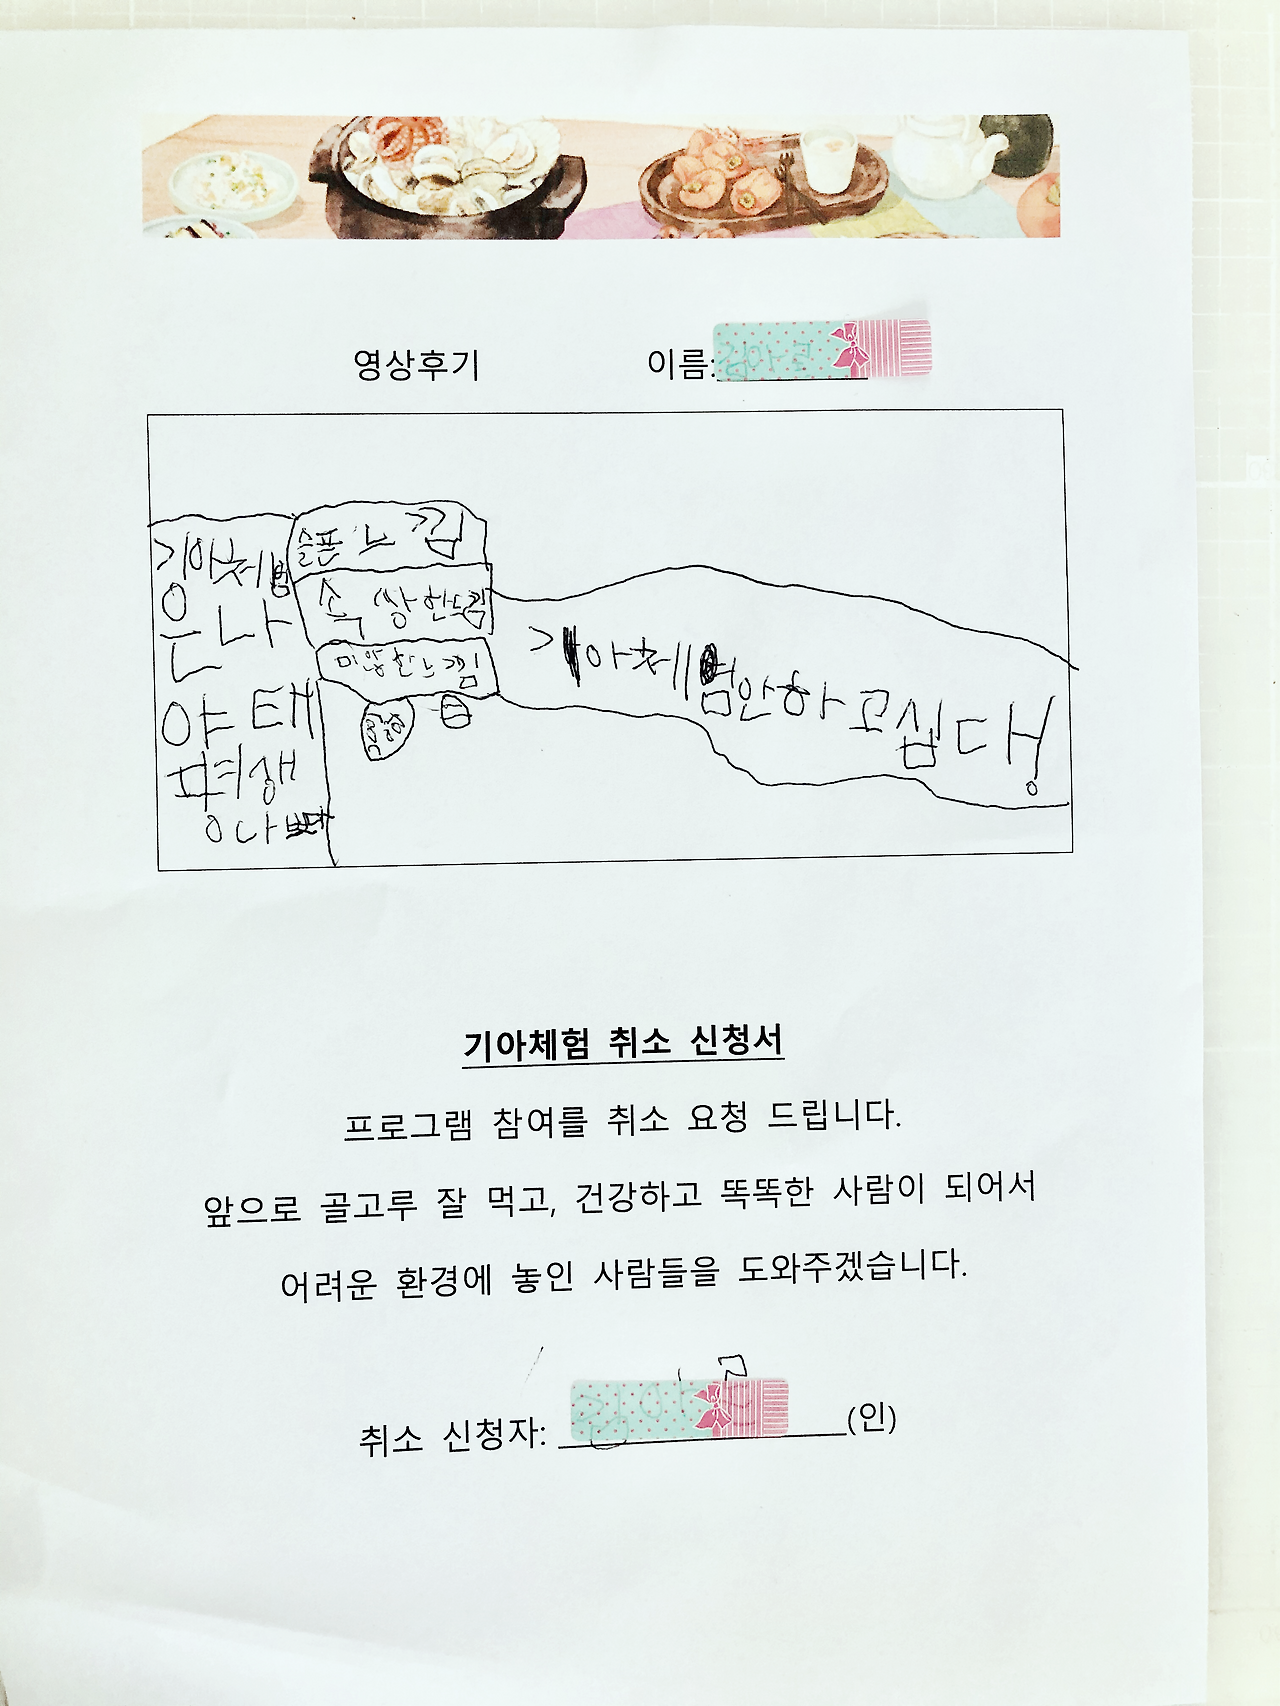 영상후기 이름:
기아체험
은 나
슬픈 느낌
속쌍한 느낌
미안한 느낌
기아체험 안 하고 십다!
기아체험 취소 신청서
프로그램 참여를 취소 요청 드립니다.
앞으로 골고루 잘 먹고, 건강하고 똑똑한 사람이 되어서
어려운 환경에 놓인 사람들을 도와주겠습니다.
취소 신청자: (인)